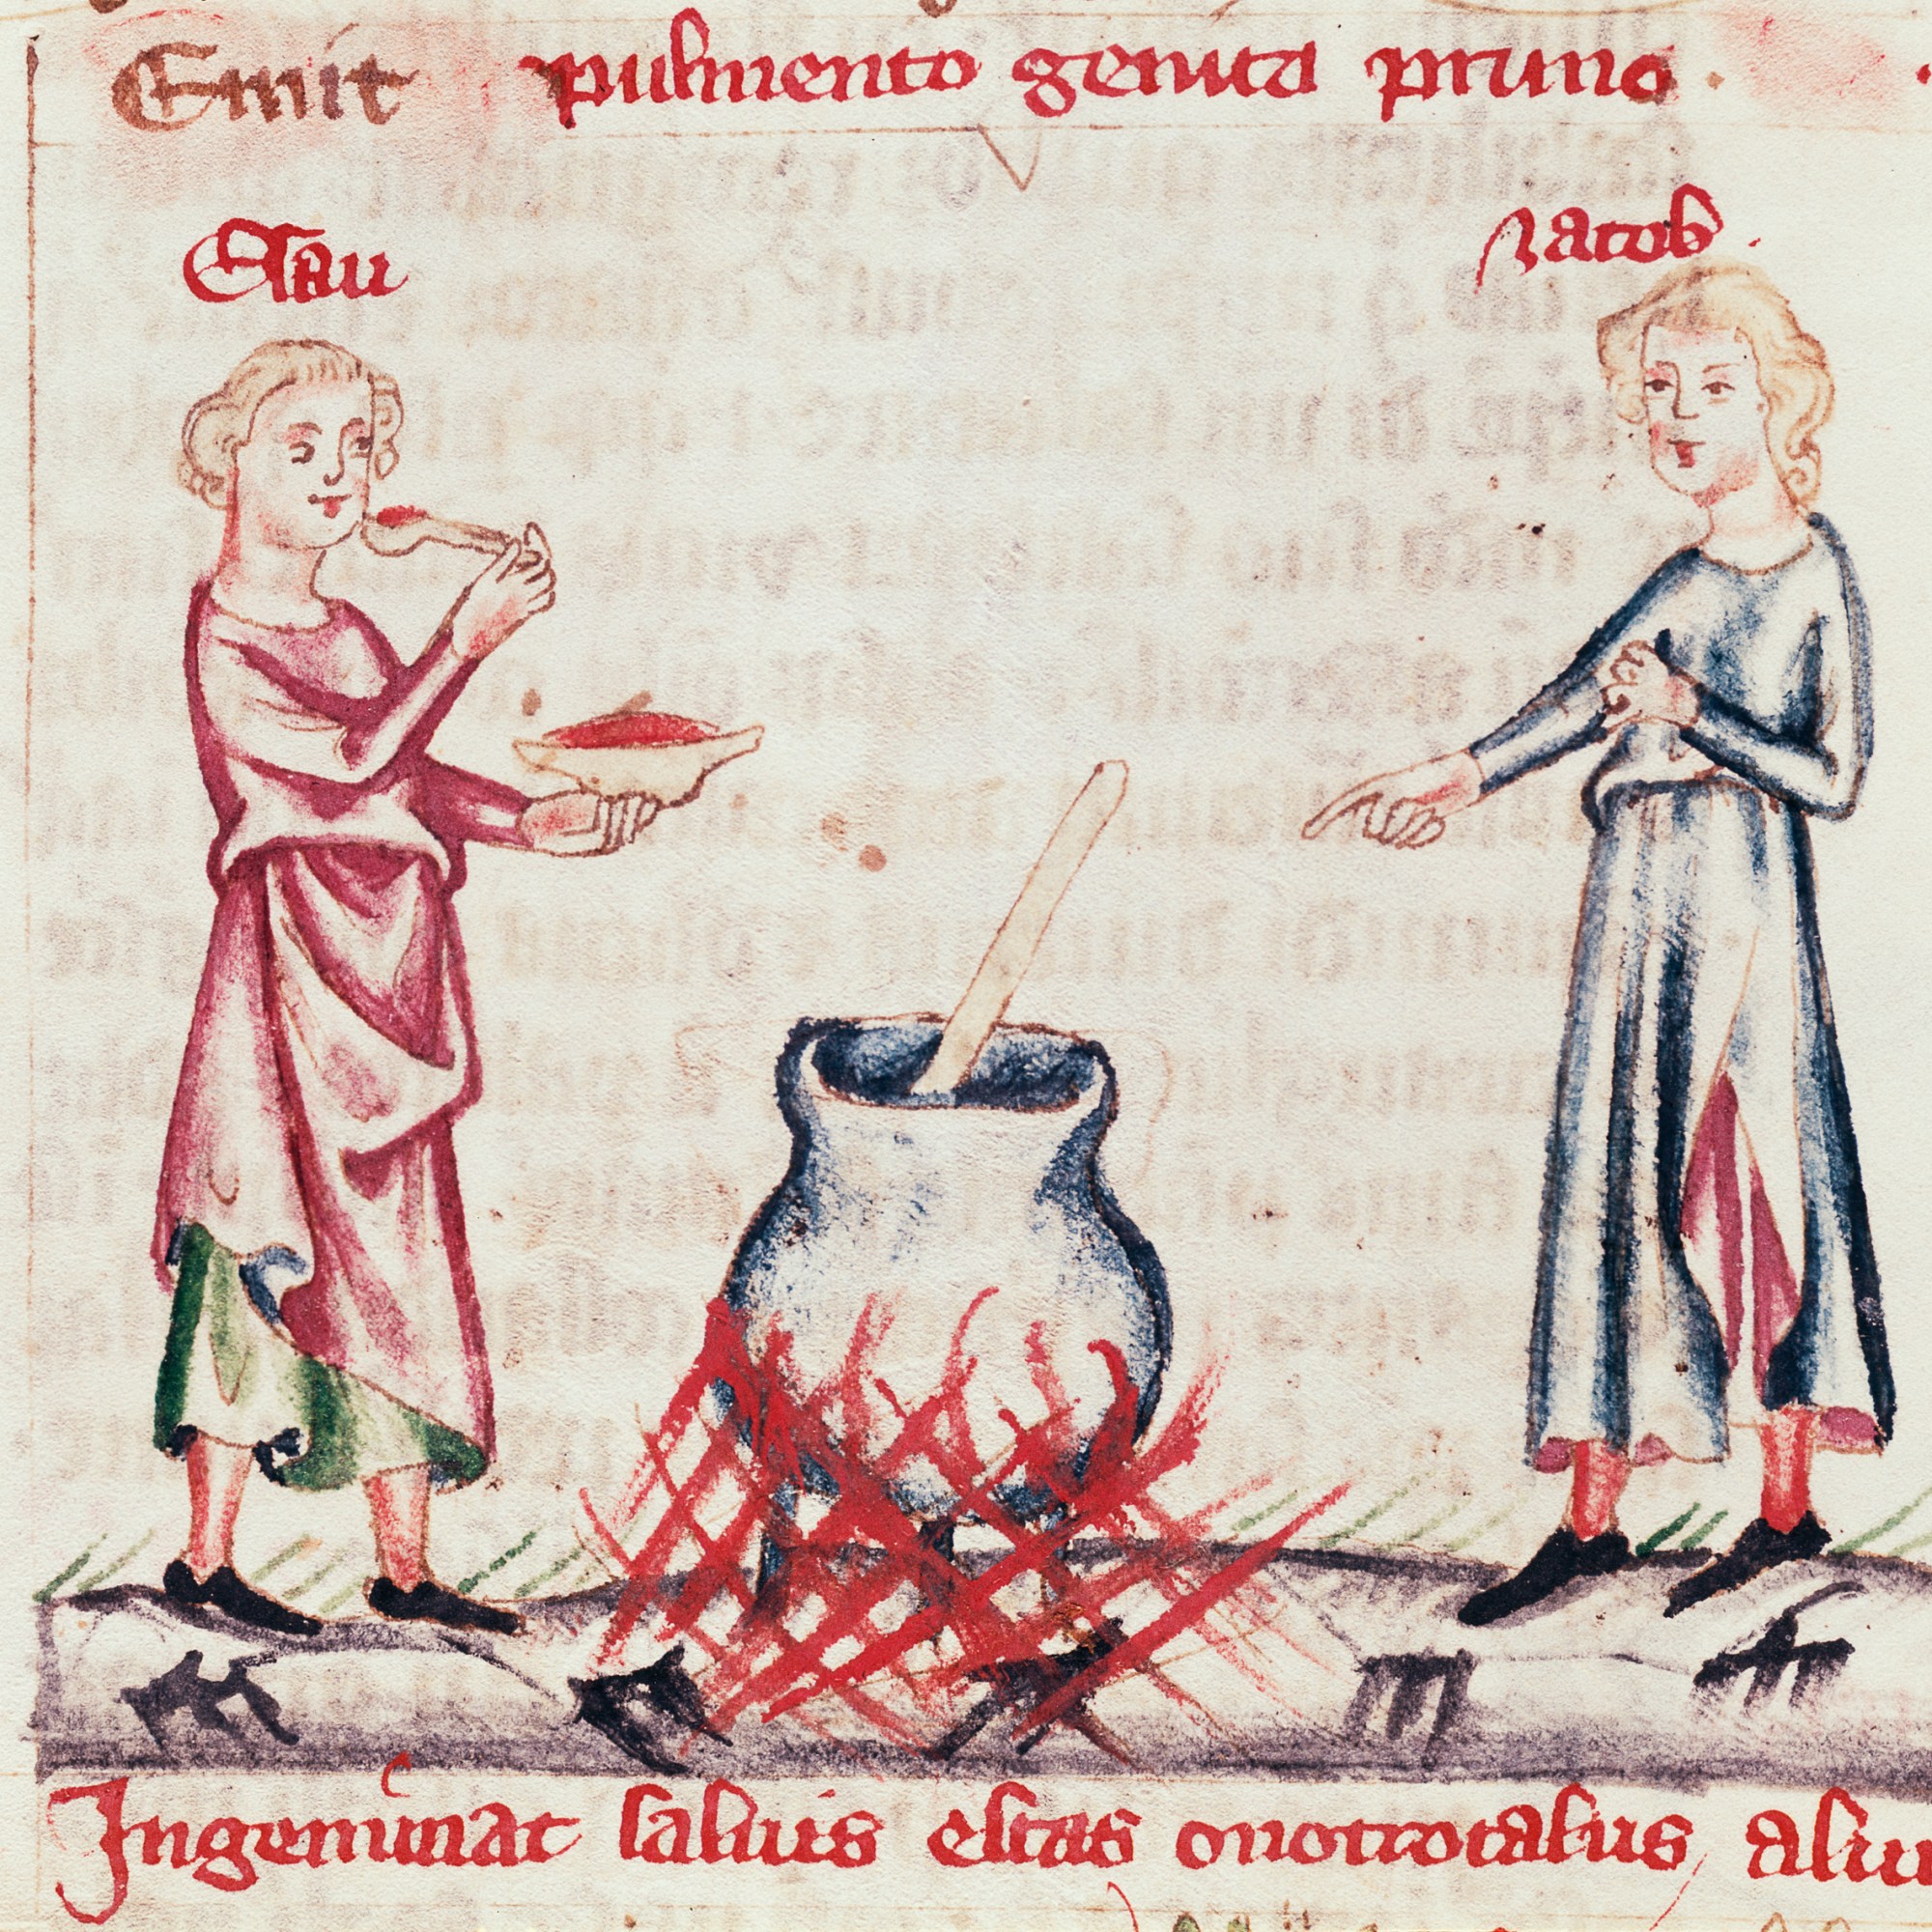 Emit pulmento genita primo .
Esau
Iacob .
Ingeminat saluis estas onotrotalus alui